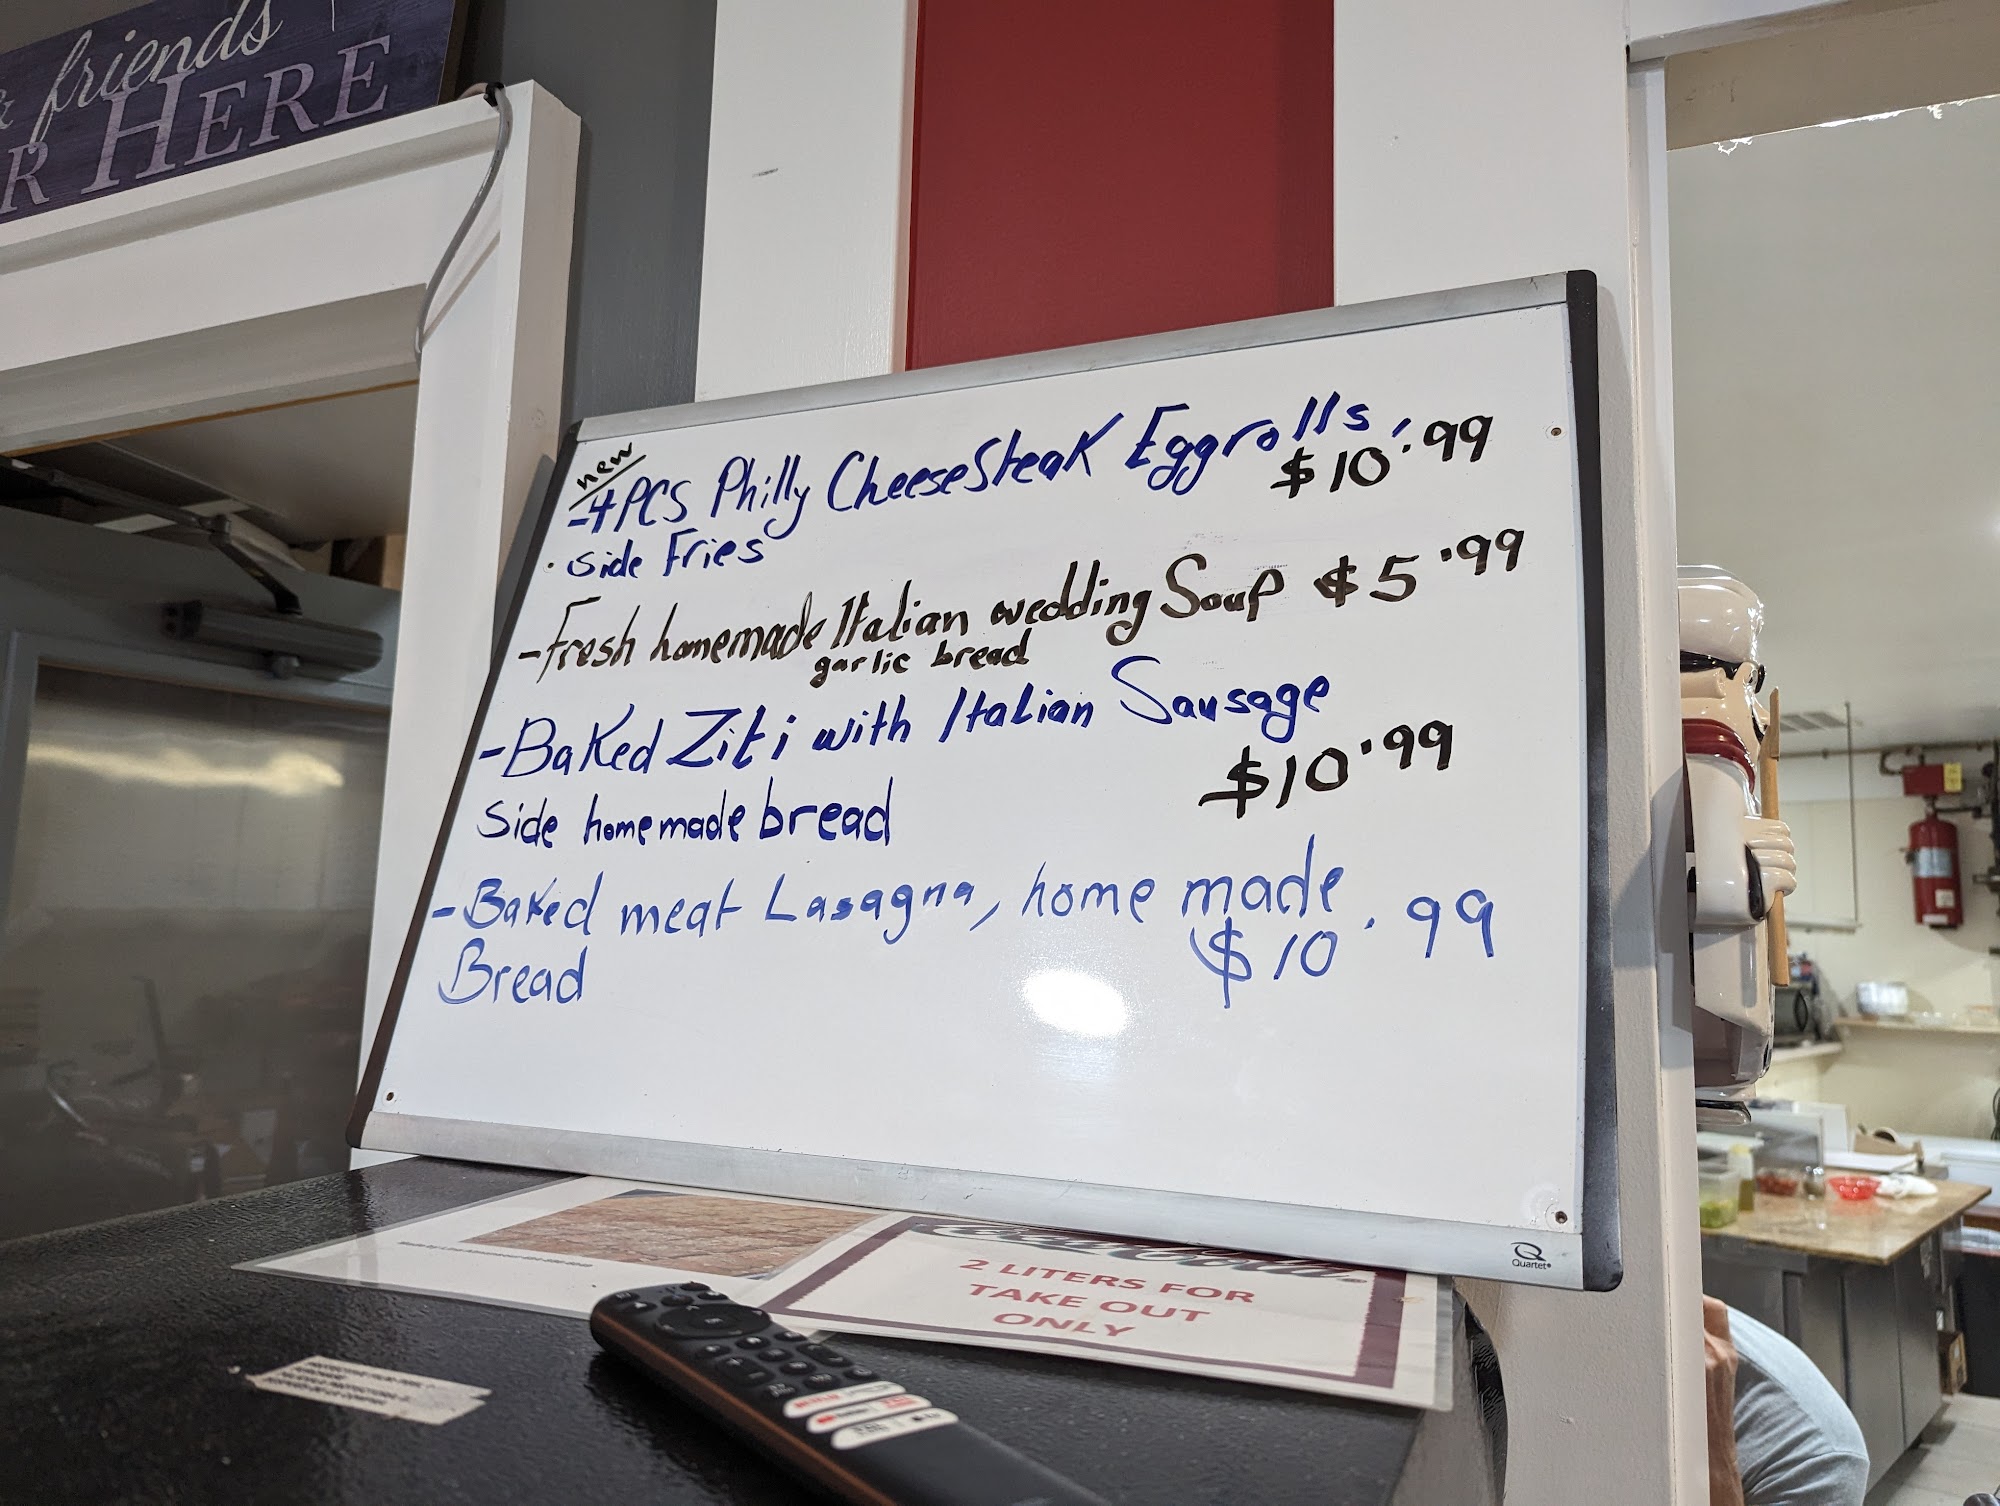 & friends
R HERE
new
-4 PCS Philly CheeseSteak Eggrolls,
$10.99
• side Fries
-Fresh homemade Italian wedding Soup $5.99
garlic bread
-Baked Ziti with Italian Sausage
$10.99
side homemade bread
-Baked meat Lasagna, home made
$10.99
Bread
Quartet
2 LITERS FOR
TAKE OUT
ONLY